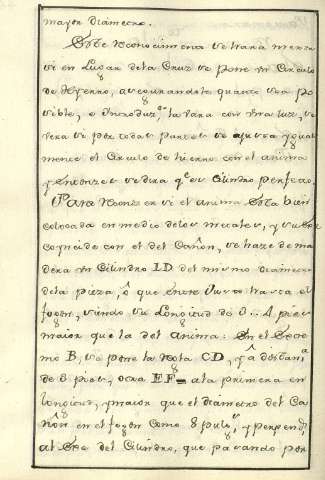 mayor Diametro.
Este Reconocimto. se hara menor
si en Lugar dela Cruz se pone vn Circulo
de Hyerro, asegurandole quanto sea po
sible, e introducda. la Vara con vna luz, se
vera si por todas partes se ajusta ygual
mente el Circulo de hierro con el anima
y entonzes se dira q.e es Cilindro perfecto.
Para Reconozer si el anima Esta bien
colocada en medio delos metales, y su exe
coyncide con el del Cañon, se haze de ma
dera vn Cilindro ID del mismo diametro
dela pieza, ô que entre Justo hasta el
fogon, siendo su Longitud de 3.. 4 pies
maior que la del anima: En el Extre
mo B, se pone la Regla CD, y â distan.a
de 3 pies, otra EF ala primera en
longitud, y maior que el diametro del Ca
ñon en el fogon como 8 pulg.s y perpend.r
al Exe del Cilindro, que pasando por